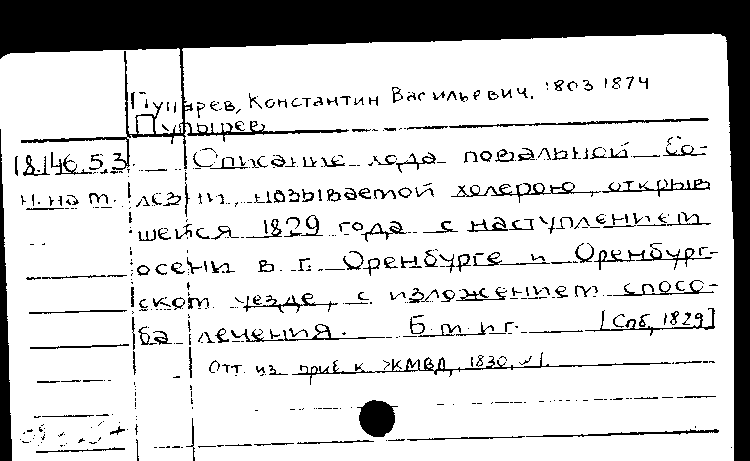 Пупарев, Константин Васильевич. 1803 1874
Пупырев
18.146.5.3. Описание хода повальной бо-
н. на т. лезни, называемой холерою, открыв
шейся 1829 года с наступлением
осени в г. Оренбурге и Оренбург-
ском уезде, с изложением спосо-
ба лечения. Б. м. и г. [Спб, 1829]
Отт. из приб. к ЖМВД, 1830, №1.